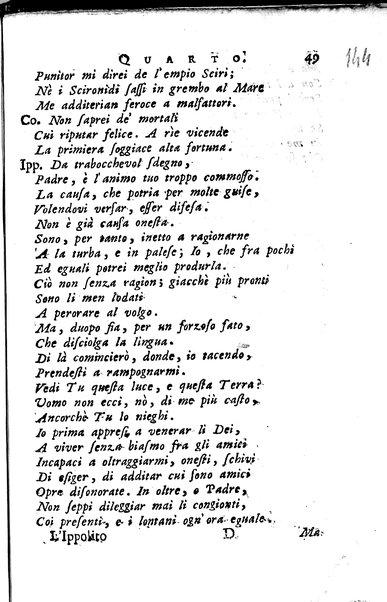 QUARTO. 49 144
Punitor mi direi de l'empio Sciri;
Nè i Scironidi sassi in grembo al Mare
Me additerian feroce a malfattori.
Co. Non saprei de' mortali
Cui riputar felice. A rie vicende
La primiera soggiace alta fortuna.
Ipp. Da trabocchevol sdegno,
Padre, è l'animo tuo troppo commosso.
La causa, che potria per molte guise,
Volendovi versar, esser difesa.
Non è già causa onesta.
Sono, per tanto, inetto a ragionarne
A la turba, e in palese; Io, che fra pochi
Ed eguali potrei meglio produrla.
Ciò non senza ragion; giacchè più pronti
Sono li men lodati
A perorare al volgo.
Ma, duopo fia, per un forzoso fato,
Che disciolga la lingua.
Di là comincierò, donde, io tacendo,
Prendesti a rampognarmi.
Vedi Tu questa luce, e questa Terra?
Uomo non ecci, nò, di me più casto,
Ancorchè Tu lo nieghi.
Io prima appresi a venerar li Dei,
A viver senza biasmo fra gli amici
Incapaci a oltraggiarmi, onesti, schivi
Di esiger, di additar cui sono amici
Opre disonorate. In oltre, o Padre,
Non seppi dileggiar mai li congionti,
Coi presenti, e i lontani ogn'ora eguale.
L'Ippolito D Ma